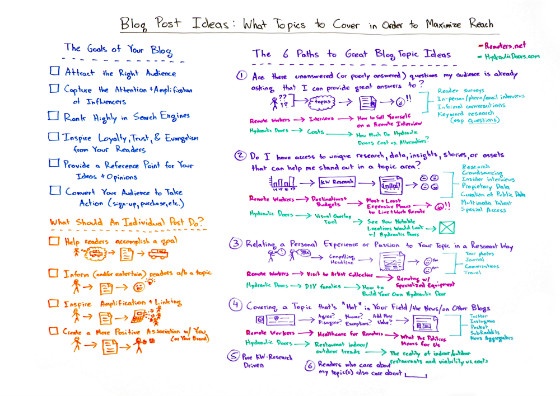 Blog Post Ideas: What Topics to Cover in Order to Maximize Reach
The Goals of Your Blog
Attract the Right Audience
Capture the Attention + Amplification
of Influencers
Rank Highly in Search Engines
Inspire Loyalty, Trust, & Evangelism
from Your Readers
Provide a Reference Point for Your
Ideas + Opinions
Convert Your Audience to Take
Action (sign-up, purchase, etc.)
What Should An Individual Post Do?
Help readers accomplish a goal
Inform (and/or entertain) readers on a topic
Inspire Amplification + Linking
Create a More Positive Association w/ You
(or Your Brand)
The 6 Paths to Great Blog Topic Ideas
- Remoters.net
- HydraulicDoors.com
① Are there unanswered (or poorly answered) questions my audience is already
asking, that I can provide great answers to?
Reader surveys
In-person/phone/email interviews
Informal conversations
Keyword research
(esp questions)
?? ?? → topics → → !!
Remote Workers → Interviews → How to Sell Yourself
on a Remote Interview
Hydraulic Doors → Costs → How Much Do Hydraulic
Doors Cost vs Alternatives?
② Do I have access to unique research, data, insights, stories, or assets
that can help me stand out in a topic area?
Research
Crowdsourcing
Insider Interviews
Proprietary Data
Curation of Public Data
Multimedia Talent
Special Access
KW Research
Remote Workers → Destinations + Budgets → Most + Least
Expensive Places
to Live + Work Remote
!!
Hydraulic Doors → Visual Overlay
Tool → See How Notable
Locations Would Look
w/ Hydraulic Doors
③ Relating a Personal Experience or Passion to Your Topic in a Resonant Way
Compelling
Headline
Your photos
Journal
Conversations
Travels
Remote Workers → Visit to Artist Collective → Remoting w/
Specialized Equipment
Hydraulic Doors → DIY families → How to
Build Your Own Hydraulic Door
④ Covering a Topic that's "Hot" in Your Field/the News/on Other Blogs
Agree? Nuance? Add More
Disagree? Exception? Value?
Twitter
Instagram
Pocket
SubReddits
News Aggregators
Remote Workers → Healthcare for Remoters → What the Politics
Means for Us
Hydraulic Doors → Restaurant indoor/
outdoor trends → The reality of indoor/outdoor
restaurants and
⑤ Pure KW-Research
Driven
⑥ Readers who care about
my topic(s) also care about